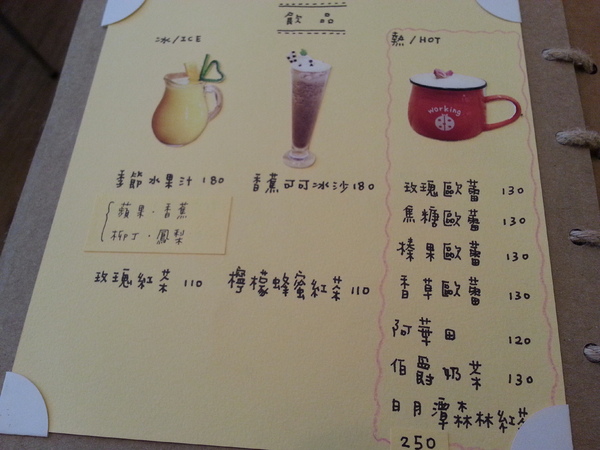 飲品
冰/ICE
季節水果汁 180
蘋果·香蕉
柳丁·鳳梨
香蕉可可冰沙 180
玫瑰紅茶 110
檸檬蜂蜜紅茶 110
熱/HOT
working
玫瑰歐蕾 130
焦糖歐蕾 130
榛果歐蕾 130
香草歐蕾 130
阿華田 120
伯爵奶茶 130
日月潭森林紅茶
250